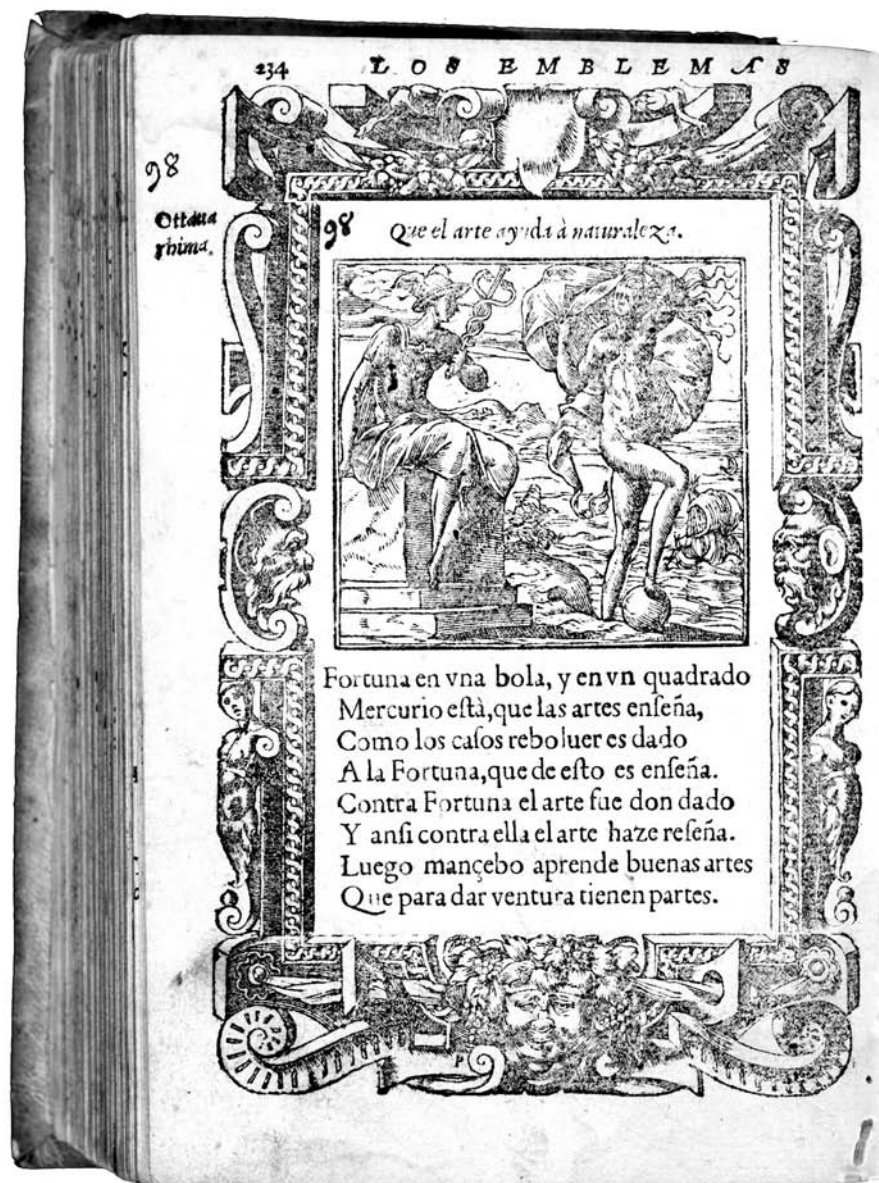 234 LOS EMBLEMAS
98
Ottaua
rhima.
98 Que el arte ayuda à naturaleza.
Fortuna en vna bola, y en vn quadrado
Mercurio eſtà, que las artes enſeña,
Como los caſos reboluer es dado
A la Fortuna, que de eſto es enſeña.
Contra Fortuna el arte fue don dado
Y anſi contra ella el arte haze reſeña.
Luego mançebo aprende buenas artes
Que para dar ventura tienen partes.
P